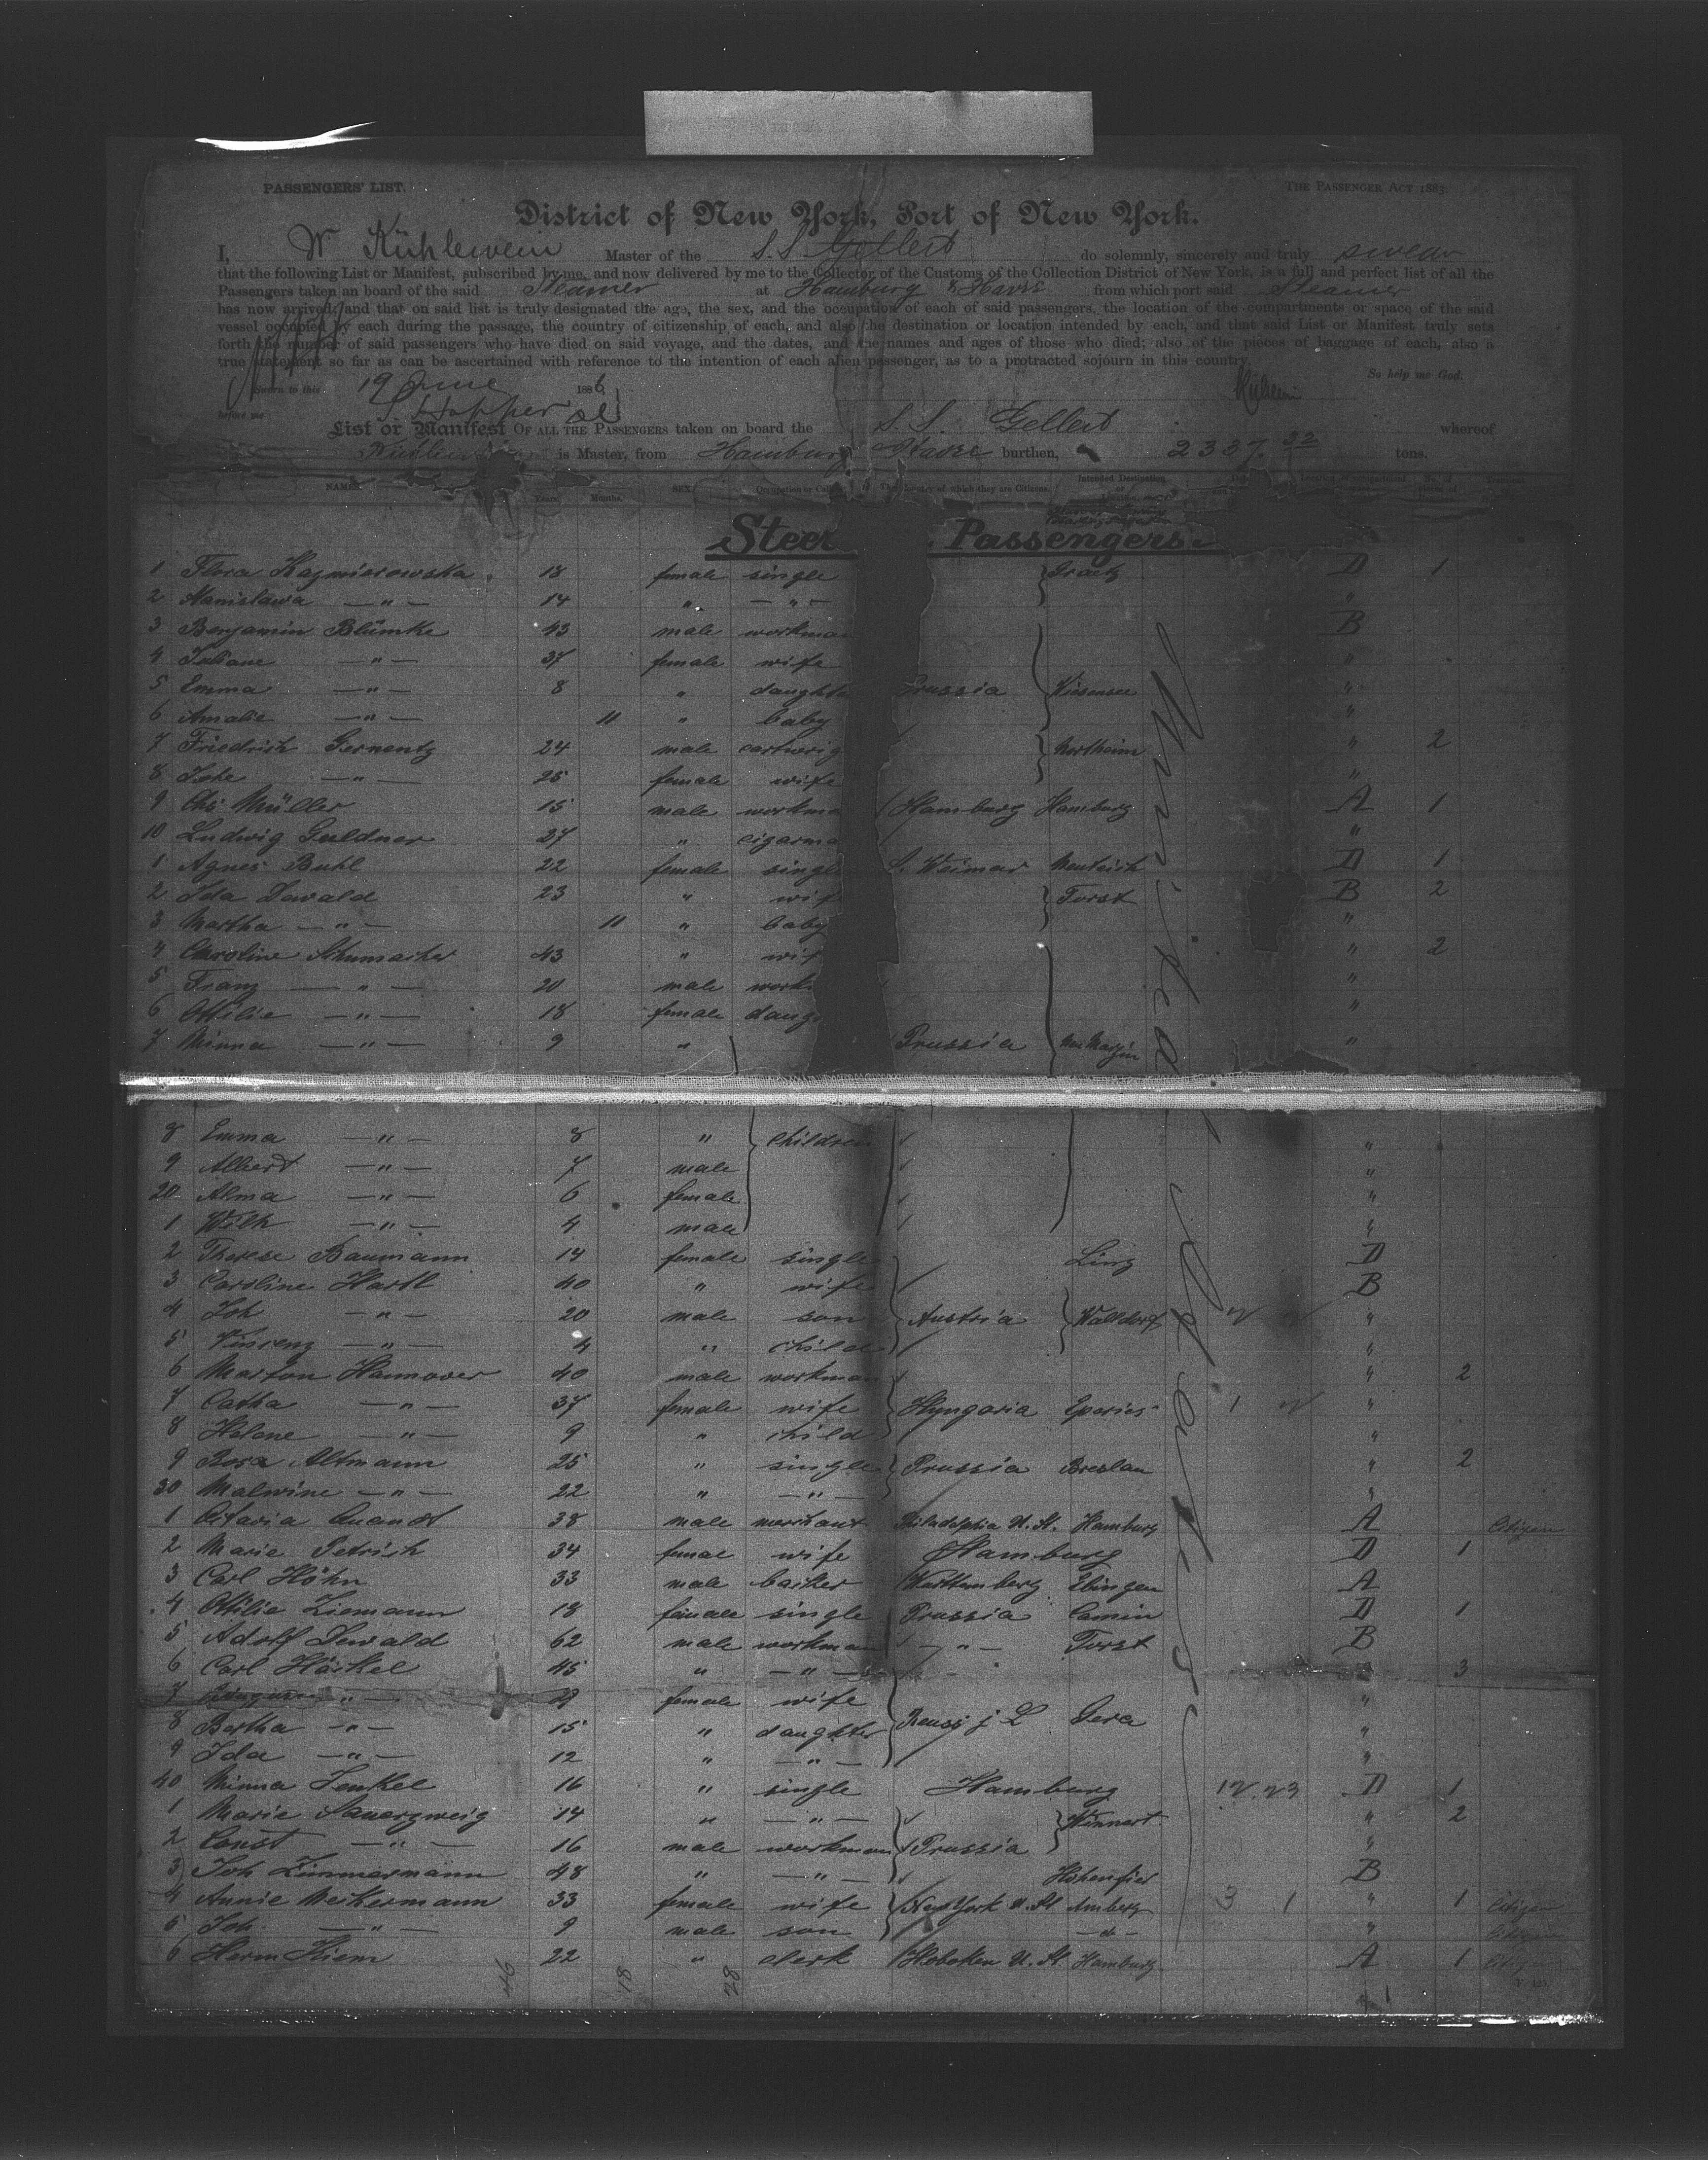 PASSENGERS' LIST.
THE PASSENGER ACT 1883
District of New York, Port of New York.
I, W Kühlewein Master of the S.S Gellert do solemnly, sincerely and truly swear
that the following List or Manifest, subscribed by me, and now delivered by me to the Collector of the Customs of the Collection District of New York, is a full and perfect list of all the
Passengers taken an board of the said Steamer at Hamburg & Havre from which port said Steamer
has now arrived, and that on said list is truly designated the age, the sex, and the occupation of each of said passengers, the location of the compartments or space of the said
vessel occupied by each during the passage, the country of citizenship of each, and also the destination or location intended by each, and that said List or Manifest truly sets
forth the number of said passengers who have died on said voyage, and the dates, and the names and ages of those who died; also of the pieces of baggage of each, also a
true statement so far as can be ascertained with reference to the intention of each alien passenger, as to a protracted sojourn in this country.
So help me God.
Sworn to this 19 June 1886
before me
List or Manifest OF ALL THE PASSENGERS taken on board the S. S. Gellert whereof
is Master, from Hamburg Havre burthen, 2337.32 tons.
NAMES Years. Months. SEX The country of which they are Citizens. Intended Destination
Steer Passengers.
1 Flora Kazmierowska 18 female single D 1
2 Stanislawa —"— 14 " —"— "
3 Benjamin Blümke 43 male workma B
4 Juliane —"— 37 female wife "
5 Emma —"— 8 " daught Prussia "
6 Amalie —"— 11 " baby "
7 Friedrich Gernentz 24 male cartwrig Northeim " 2
8 —"— 25 female wife "
9 Chs Müller 15 male workma Hamburg Hamburg A 1
10 Ludwig Guldner 27 " cigarma "
1 Agnes Buhl 22 female single S. Weimar Neuteich D 1
2 Ida Dewald 23 " wif Forst B 2
3 Martha —"— 11 " baby "
4 Caroline Schumacher 43 " wif " 2
5 Franz —"— 20 male work "
6 Ottilie —"— 18 female daug "
7 Minna —"— 9 " Prussia "
8 Emma —"— 8 " children "
9 Albert —"— 7 male "
20 Alma —"— 6 female "
1 Wilh —"— 4 male "
2 Therese Baumann 14 female single Linz D
3 Caroline Hartl 40 " wife B
4 Joh —"— 20 male son Austria Walldorf "
5 Vincenz —"— 4 " child "
6 Marton Hannover 40 male workman " 2
7 Catha —"— 37 female wife Hyngaria Eperies 1 "
8 Helene —"— 9 " child "
9 Rosa Altmann 25 " single Prussia Breslau " 2
30 Malwine —"— 22 " —"— "
1 Octavia Quandt 38 male merchant Philadelphia U. St. Hamburg A Citizen
2 Marie Petrich 34 femae wife Hamburg D 1
3 Carl Höhn 33 male backer Württemberg Ebingen A
4 Ottilie Ziemann 18 female single Prussia Camin D 1
5 Adolf Dewald 62 male workman —"— Forst B
6 Carl Häckel 45 " —"— " 3
7 —"— female wife "
8 Bertha —"— 15 " daughter Reuss j L Gera "
9 Ida —"— 12 " —"— "
40 Minna Henkel 16 " single Hamburg D 1
1 Marie Sauerzweig 14 " —"— Winnert " 2
2 Ernst —"— 16 male workman Prussia "
3 Joh Zimmermann 48 " —"— Hohenfier B
4 Annie Meckermann 33 female wife New York U. St Amberg 3 1 " 1 Citizen
5 Joh —"— 9 male son —do— " Citizen
6 Herm Kiem 22 " clerk Hoboken U. St. Hamburg A 1 Citizen
46 18 28